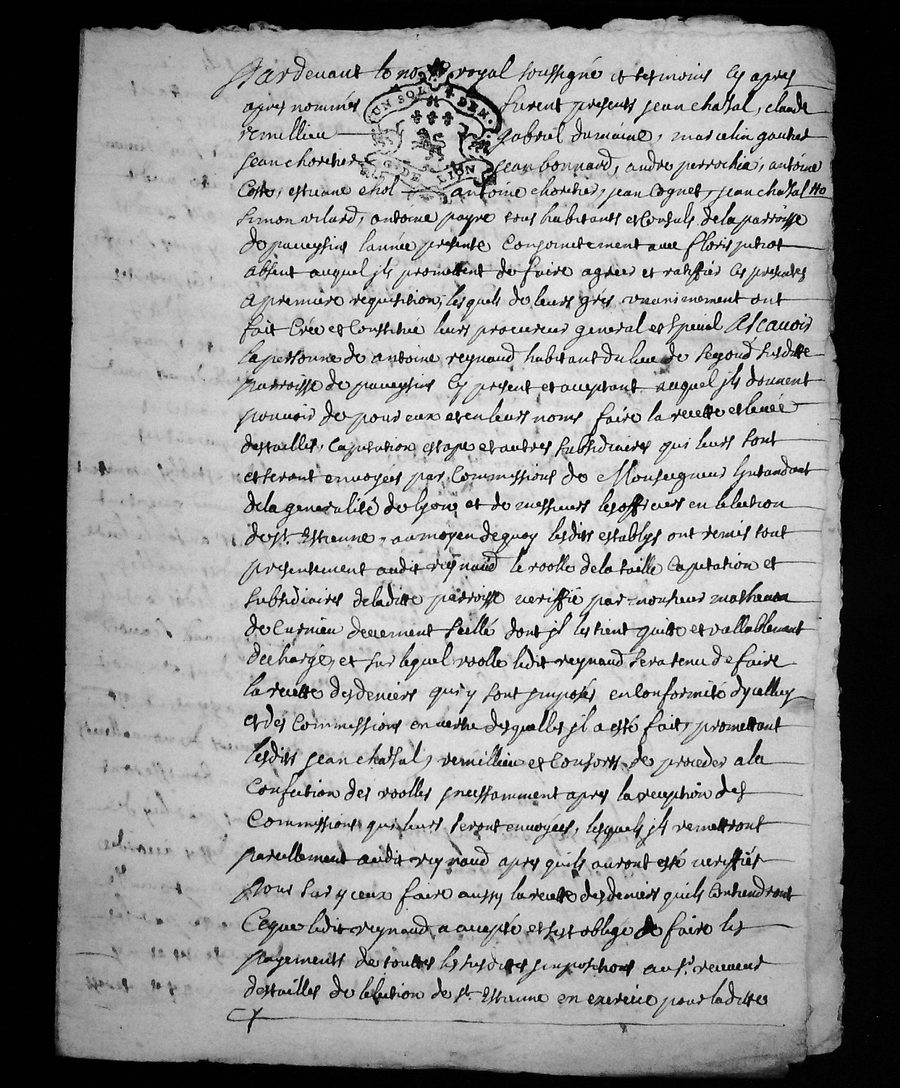 Pardevant le no.re royal soussigné et tesmoins cy apres
apres nommés furent presents jean chazal, claude
remillieu gabriel dumaine, marcelin goutier
jean chorchier jean bonnard, andre perrochia, antoine
Coste, estienne chol antoine chorchier, jean Cognet, jean chazal
Simon vilard, antoine payre tous habitants et Consuls de la parroisse
de paveysins l'année presente Conjointement avec floris jutrot
absent auquel jls promettent de faire agreer et ratiffier Ces presentes
a premiere requisition, lesquels de leurs grés unanimement ont
fait Créé et Constitué leurs procureur general et special Ascavoir
la personne de antoine reynaud habitant du lieu de Segoud susditte
parroisse de paveysins Cy present et acceptant auquel jls donnent
pouvoir de pour eux et en leurs noms faire la recette et levée
des tailles, Capitation estape et autres subsidiaires qui leurs sont
et seront envoyées par Commissions de Monseigneur Lintandant
de la generalité de lyon et de messieurs les officiers en lelection
de st. Estienne, au moyen de quoy lesdits establys ont remis tout
presentement audit reynaud le roolle de la taille Capitation et
subsidiaires de laditte parroisse veriffié par monsieur matheuon
de Curnieu deuement scellé dont jl les tient quitte et vallablement
dechargé, et sur lequel roolle ledit reynaud sera tenu de faire
la recette des deniers qui y sont jmposés en Conformité d'ycelluy
et des Commissions en vertu desquelles jl a esté fait, promettant
lesdits jean chazal, remillieu et Consorts de proceder a la
Confection des roolles jncessamment apres la reception des
Commissions qui leurs seront envoyées, lesquels jls remettront
pareillement audit reynaud apres quils auront esté veriffiés
pour sur yceux faire aussy la recette des deniers quils Contiendront
Ce que ledit reynaud a accepté et sest obligé de faire les
payements de touttes les susdittes jmpositions au sr. receveur
des tailles de lelection de st. Estienne en exercice pour laditte
UN SOL 4 DEN.
G. DE LION